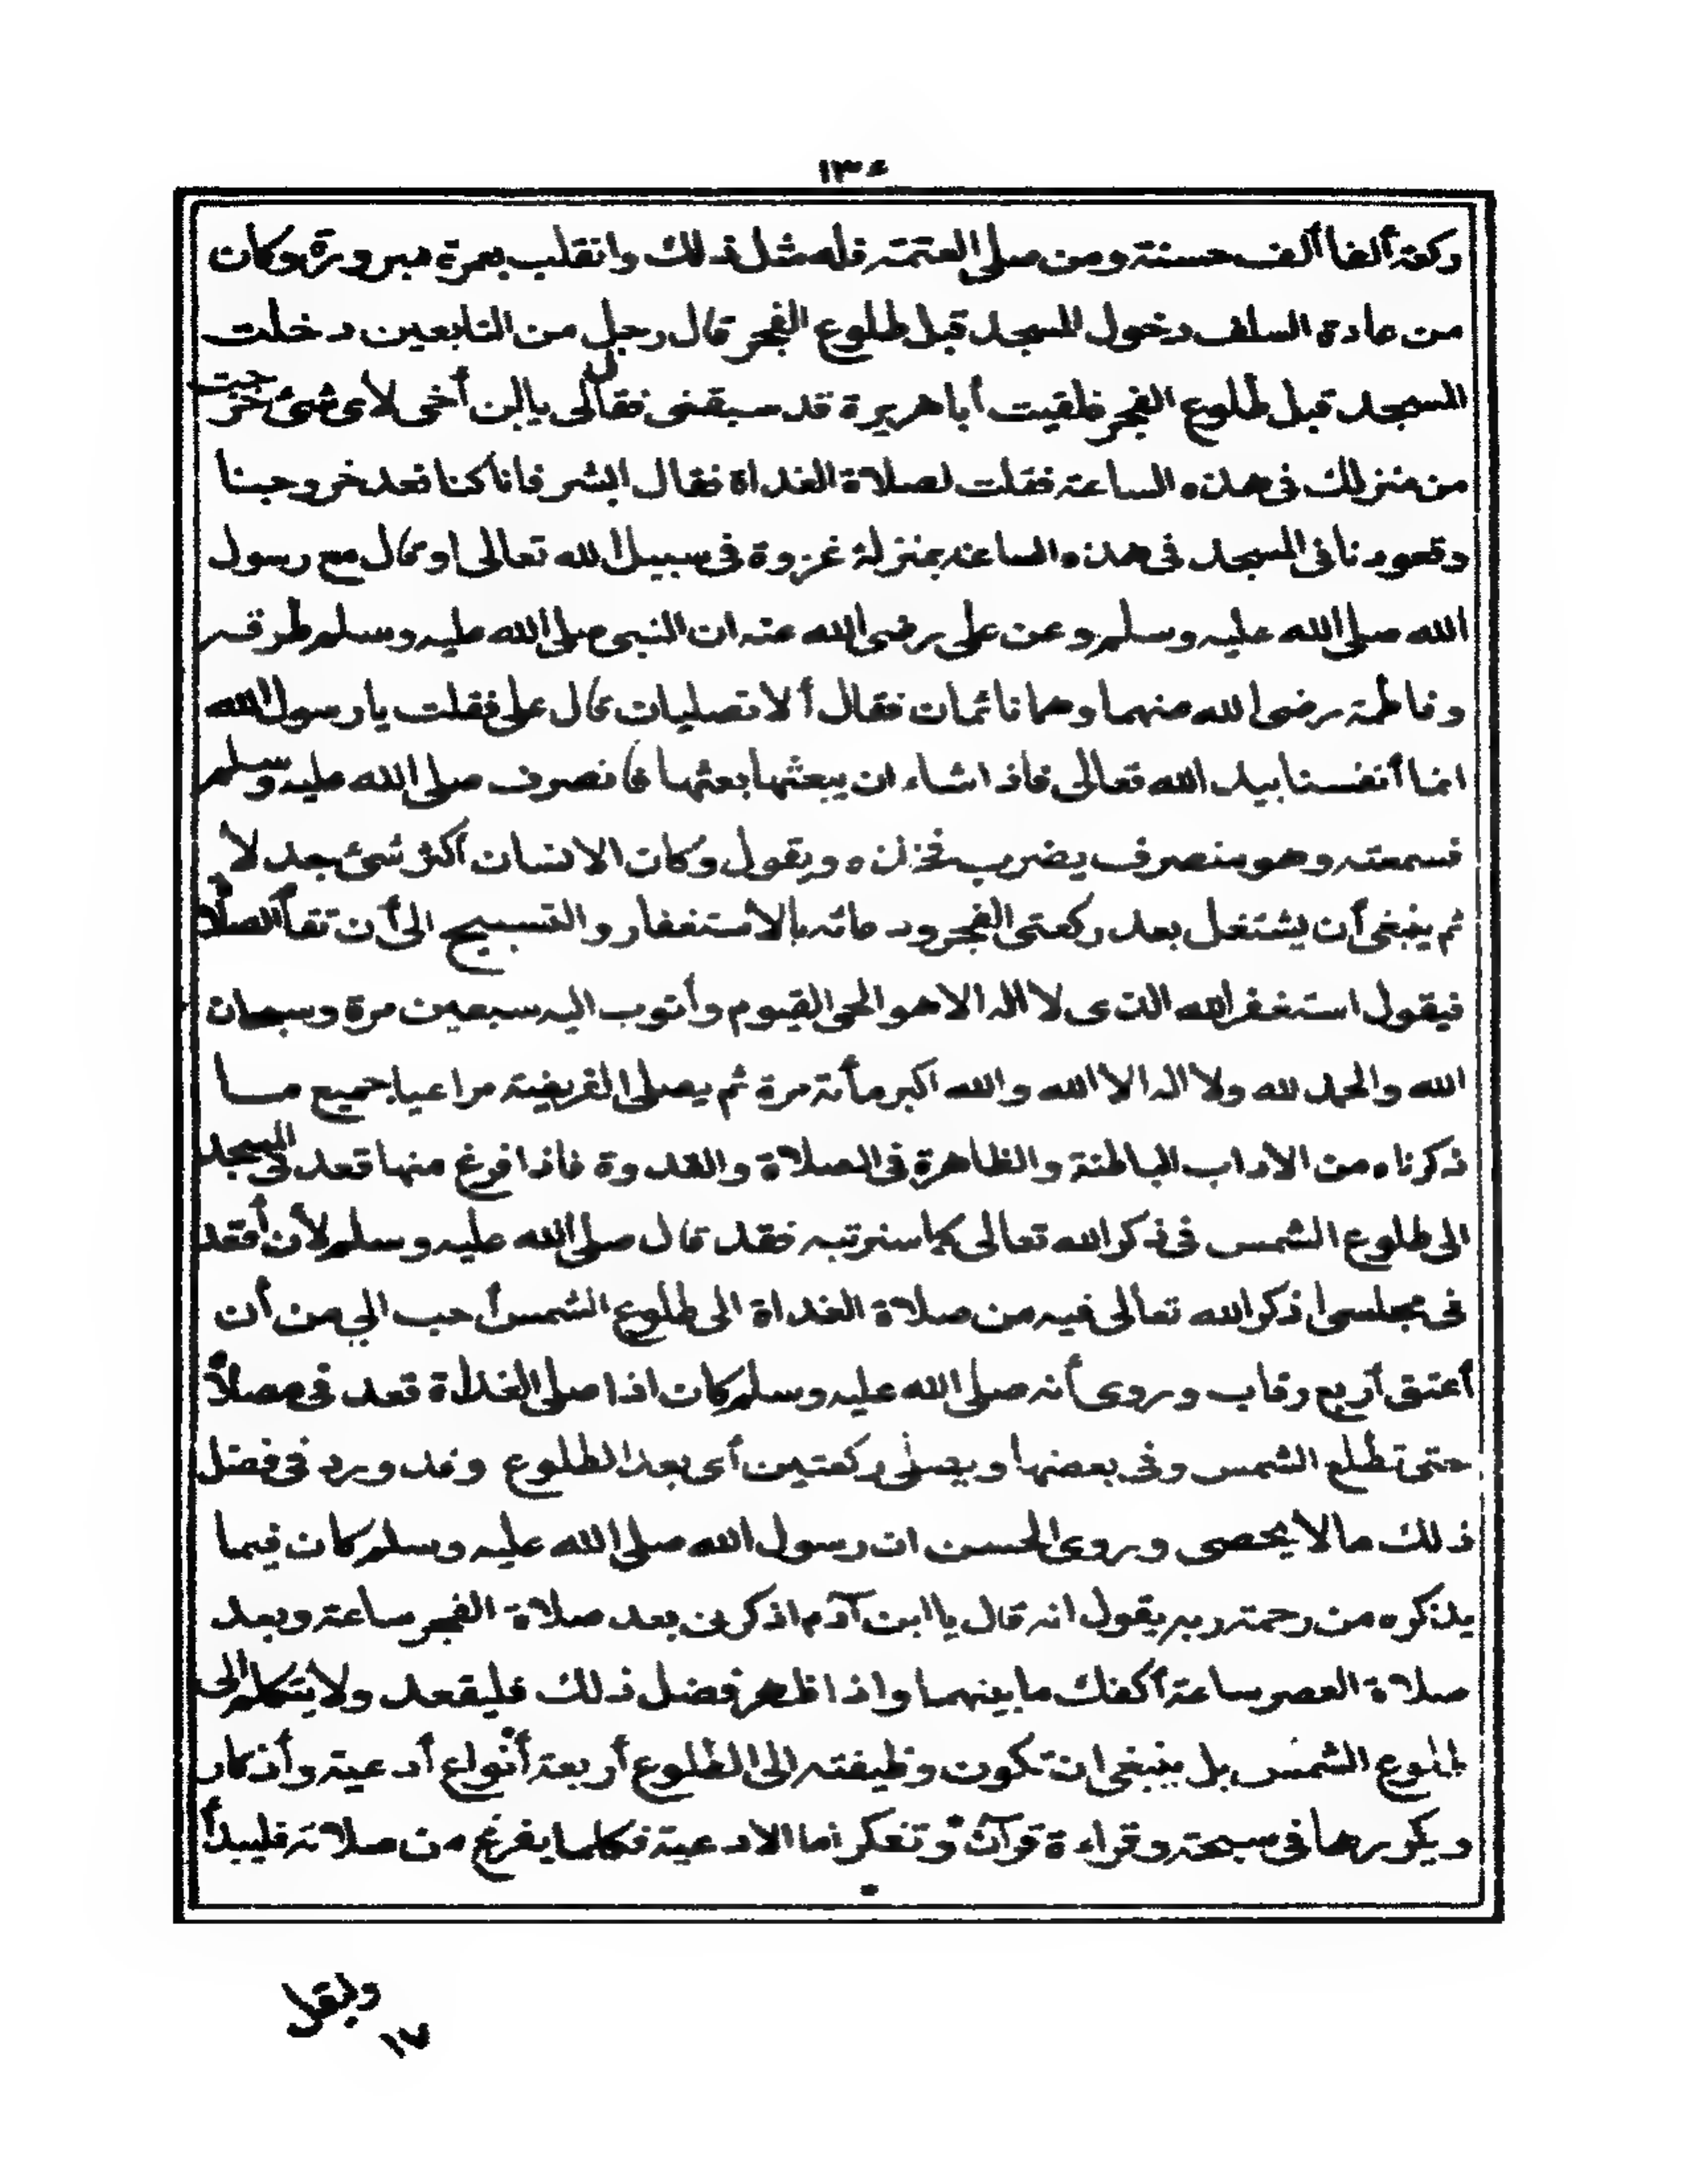 ١٣٤
ركعة ألفا ألف حسنة ومن صلى العتمة فله مثل ذلك وانقلب بعمرة مبرورة وكان
من عادة السلف دخول المسجد قبل طلوع الفجر قال رجل من التابعين دخلت
المسجد قبل طلوع الفجر فلقيت أبا هريرة قد سبقنى فقال لى يا ابن أخى لاى شئ خرجت
من منزلك فى هذه الساعة فقلت لصلاة الغداة فقال ابشر فانا كنا نعد خروجنا
وقعودنا فى المسجد فى هذه الساعة بمنزلة غزوة فى سبيل الله تعالى او قال مع رسول
الله صلى الله عليه وسلم وعن على رضى الله عنه ان النبى صلى الله عليه وسلم طرقه
وفاطمة رضى الله عنهما وهما نائمان فقال ألا تصليان قال على فقلت يا رسول الله
انما أنفسنا بيد الله تعالى فاذا شاء ان يبعثها بعثها فانصرف صلى الله عليه وسلم
فسمعته وهو منصرف يضرب فخذه ويقول وكان الانسان أكثر شئ جدلا
ثم ينبغى أن يشتغل بعد ركعتى الفجر ودعائه بالاستغفار والتسبيح الى أن تقام الصلاة
فيقول استغفر الله الذى لا اله الا هو الحى القيوم وأتوب اليه سبعين مرة وسبحان
الله والحمد لله ولا اله الا الله والله اكبر مأئة مرة ثم يصلى الفريضة مراعيا جميع مـا
ذكرناه من الاداب الباطنة والظاهرة فى الصلاة والقدوة فاذا فرغ منها قعد فى المسجد
الى طلوع الشمس فى ذكر الله تعالى كما سنرتبه فقد قال صلى الله عليه وسلم لأن أقعد
فى مجلسى اذكر الله تعالى فيه من صلاة الغداة الى طلوع الشمس أحب الي من أن
أعتق أربع رقاب وروى أنه صلى الله عليه وسلم كان اذا صلى الغداة قعد فى مصلاه
حتى تطلع الشمس وفى بعضها ويصلى ركعتين أى بعد الطلوع وقد ورد فى فضل
ذلك ما لا يحصى وروى الحسن ان رسول الله صلى الله عليه وسلم كان فيما
يذكره من رحمة ربه يقول انه قال يا ابن آدم اذكرنى بعد صلاة الفجر ساعة وبعد
صلاة العصر ساعة أكفك ما بينهما واذا ظهر فضل ذلك فليقعد ولا يتكلم الى
طلوع الشمس بل ينبغى ان تكون وظيفته الى الطلوع أربعة أنواع أدعية وأذكار
ويكررها فى سبحة وقراءة قرآن وتفكر اما الادعية فكلما يفرغ من صلاته فليبدأ
وليقل
١٧